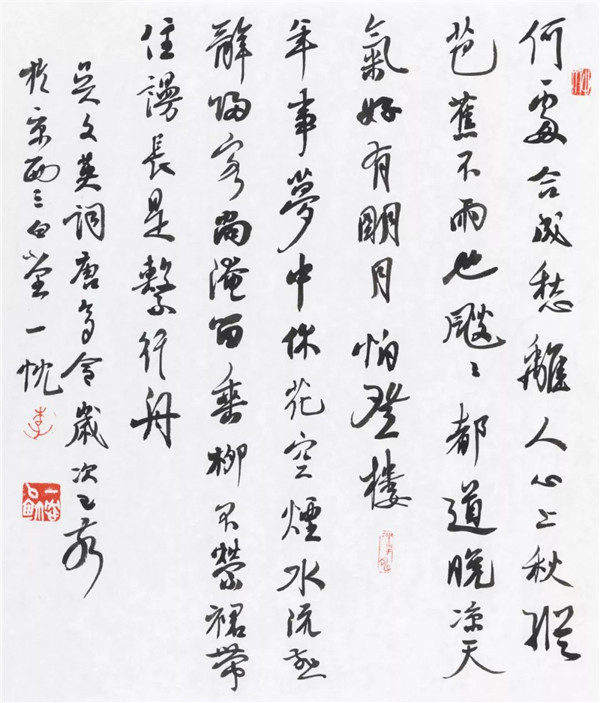 何處合成愁離人心上秋縱
芭蕉不雨也颼〻都道晚涼天
氣好有明月怕登樓
年事夢中休花空煙水流燕
辭歸客尚淹留垂柳不縈裙帶
住謾長是繫行舟
吳文英詞唐多令歲次乙
於京西三白堂一忱
李